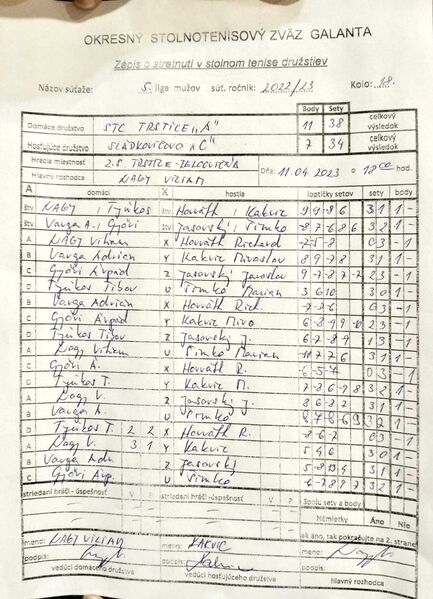 OKRESNÝ STOLNOTENISOVÝ ZVÄZ GALANTA
Zápis o stretnutí v stolnom tenise družstiev
Názov súťaže: 5. liga mužov súť. ročník: 2022/23 Kolo: 18.
Body Sety
Domáce družstvo STC TRSTICE „A" 11 38 celkový výsledok
Hosťujúce družstvo SLÁDKOVIČOVO „C" 7 34 celkový výsledok
Hracia miestnosť Dňa: 11.04 2023 o 18 00 hod.
Hlavný rozhodca NAGY VILIAM
A domáci X hostia loptičky setov sety body
štv NAGY / Tyukos štv Horváth / Kakvic 9 4 -8 6 3 1 1 -
štv Varga A. / Győri štv Jasovský / Šimko -8 7 -6 8 6 3 2 1 -
A Nagy Viliam X Horváth Richard -7 -5 -8 0 3 - 1
B Varga Adrian Y Kakvic Miroslav 8 9 -7 8 3 1 1 -
C Győri Árpád Z Jasovský Jaroslav 2 3 - 1
D Tyukos Tibor U Šimko Marian 3 6 10 3 0 1 -
B Varga Adrian X Horváth Rich. -7 -8 6 0 3 - 1
C Győri Árpád Y Kakvic Miro 2 3 - 1
D Tyukos Tibor Z Jasovský J. 1 3 - 1
A Nagy Viliam U Šimko Marian 3 1 1 -
C Győri A. X Horváth R. -6 -5 -7 0 3 - 1
D Tyukos T. Y Kakvic M. 7 -8 6 -9 8 3 2 1 -
A Nagy V. Z Jasovský J. 8 6 -8 7 3 1 1 -
B Varga A. U Šimko 3 2 1 -
D Tyukos T. 2 2 X Horváth R. -8 -6 -7 0 3 - 1
A Nagy V. 3 1 Y Kakvic 5 4 6 3 0 1 -
B Varga Adr. Z Jasovský 3 1 1 -
C Győri Árp. U Šimko 3 2 1 -
striedaní hráči - úspešnosť V P striedaní hráči - úspešnosť V P Spolu sety a body
Námietky Áno Nie
meno: NAGY VILIAM meno: KAKVIC ak áno, tak pokračujte na 2. strane
podpis: podpis:
vedúci domáceho družstva vedúci hosťujúceho družstva hlavný rozhodca